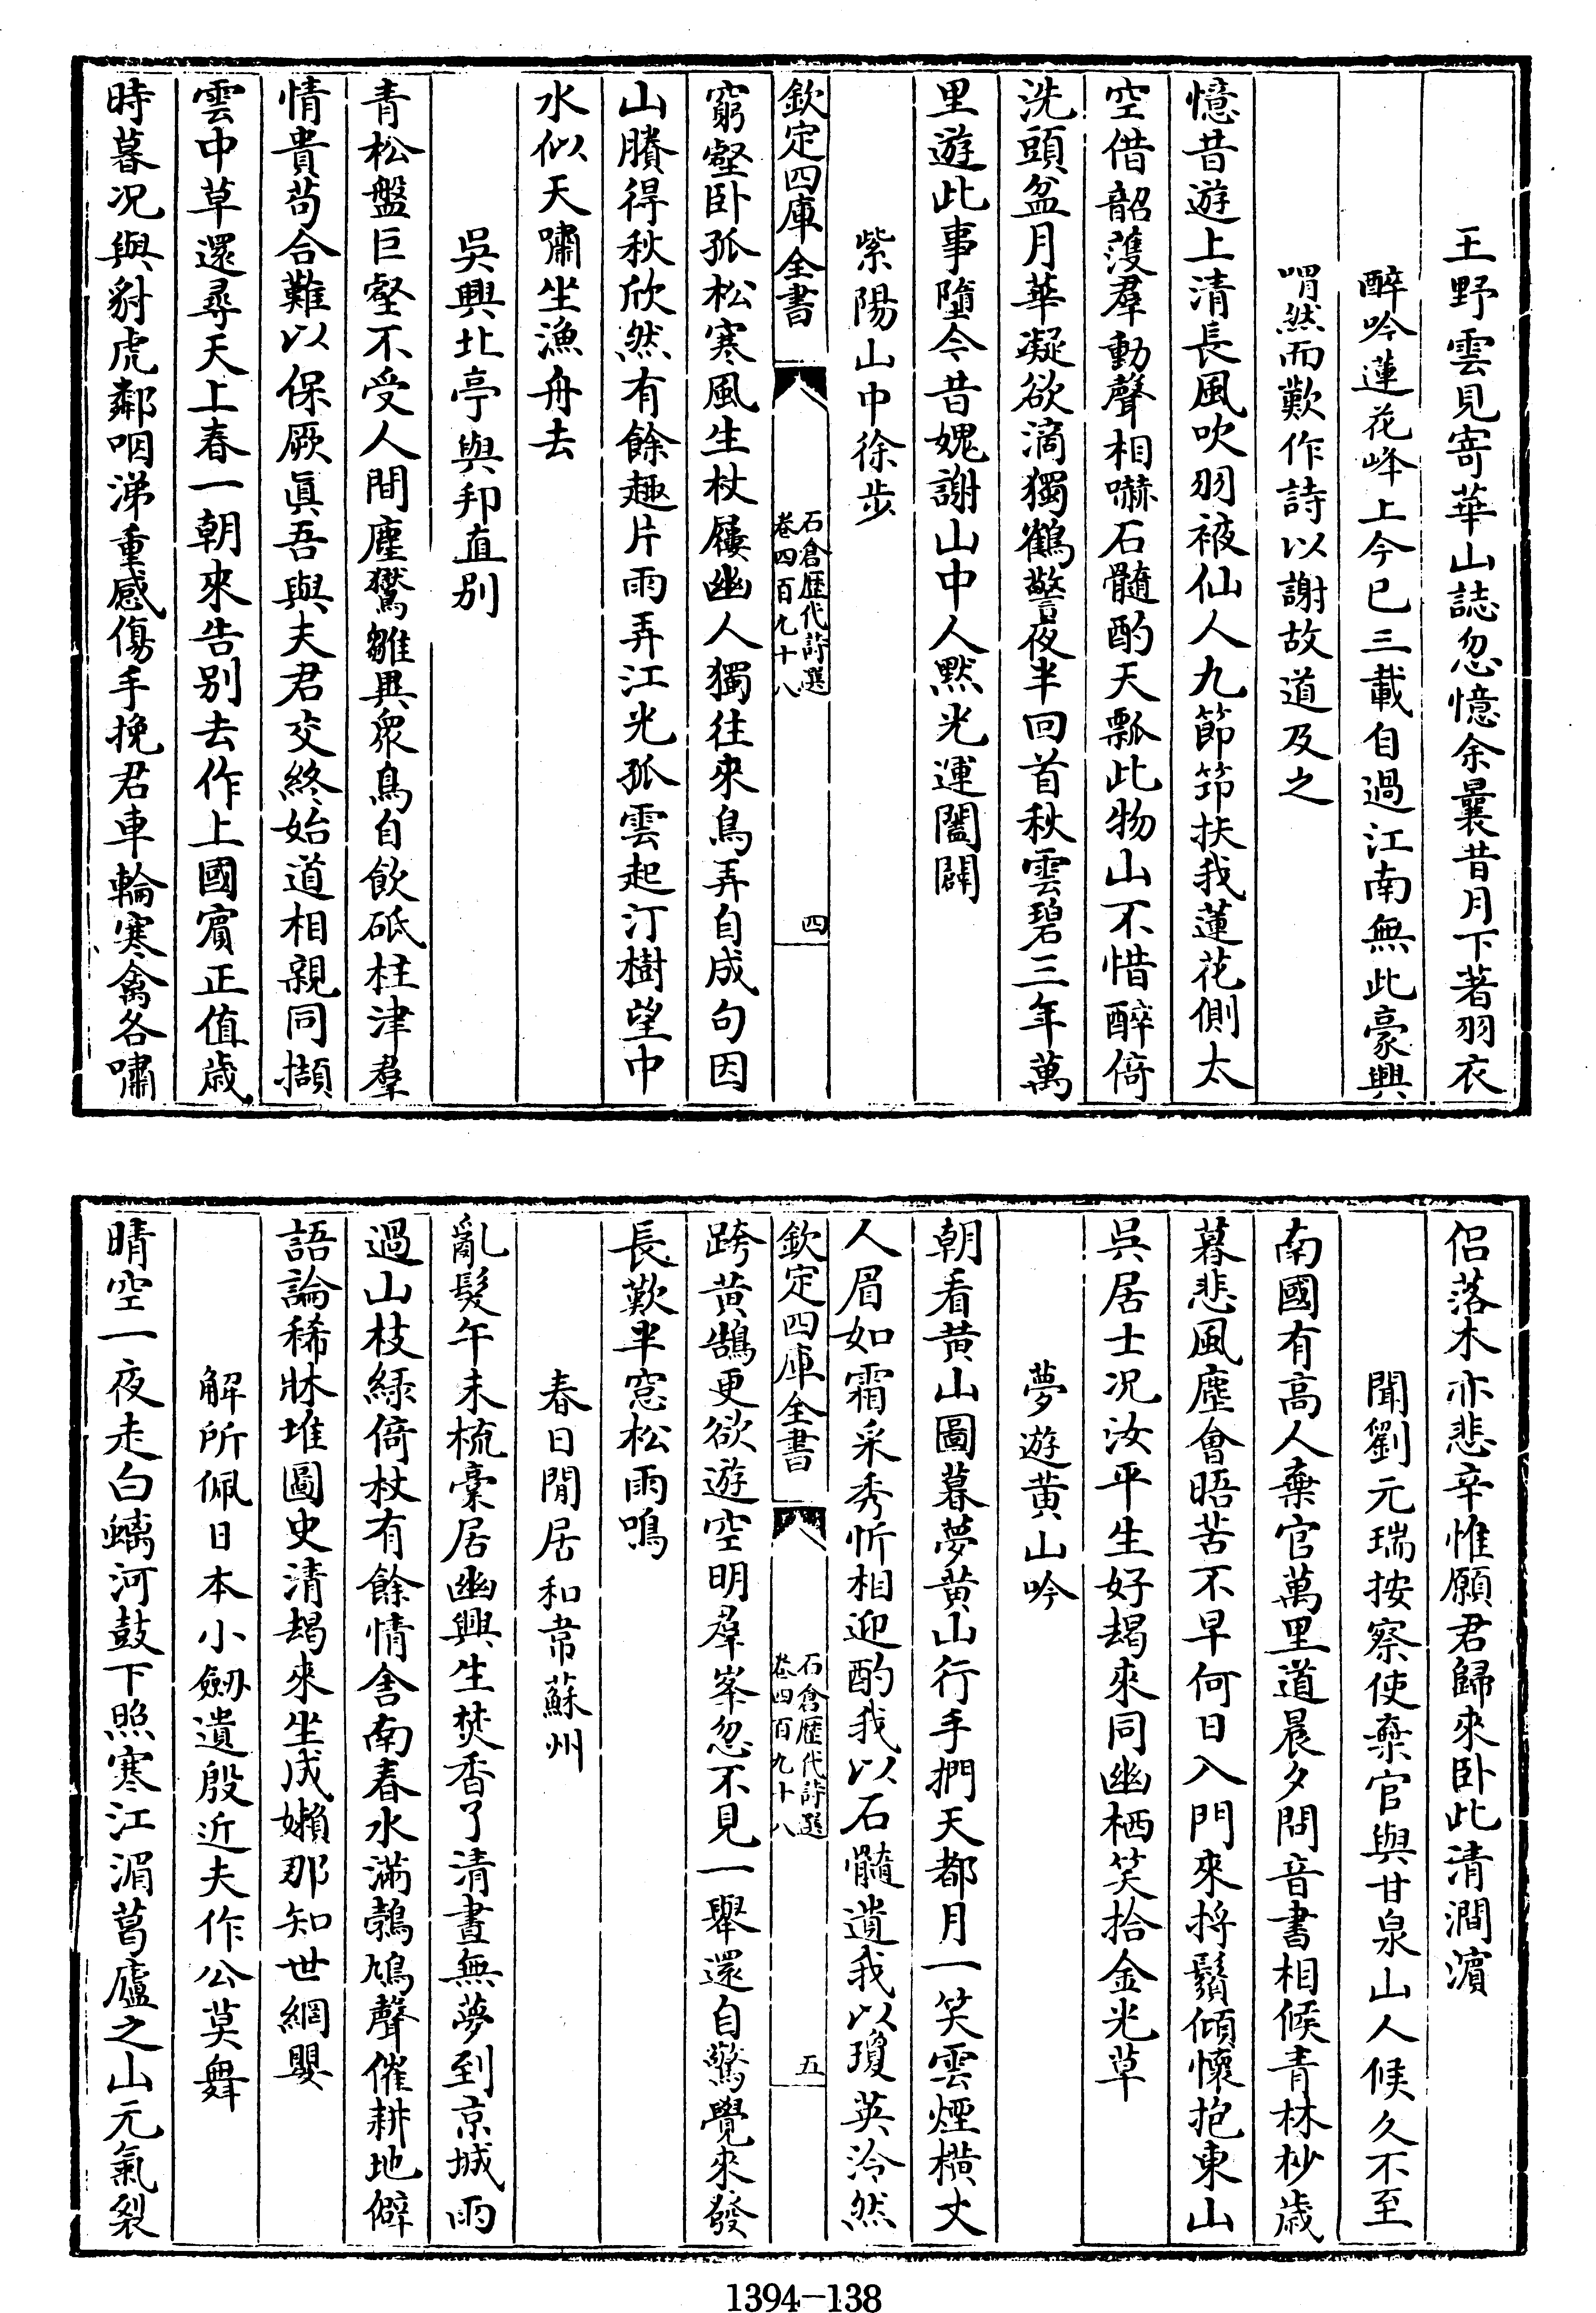 王野雲見寄華山誌忽憶余曩昔月下著羽衣
醉吟蓮花峰上今已三載自過江南無此豪興
喟然而歎作詩以謝故道及之
憶昔遊上清長風吹羽被仙人九節笻扶我蓮花側太
空借韶濩羣動聲相嚇石髓酌天瓢此物山不惜醉倚
洗頭盆月華凝欲滴獨鶴警夜半回首秋雲碧三年萬
里遊此事墮今昔媿謝山中人黙光運闔闢
紫陽山中徐步
欽定四庫全書
石倉歷代詩選
卷四百九十八
四
窮壑卧孤松寒風生杖屨幽人獨往來鳥弄自成句因
山賸得秋欣然有餘趣片雨弄江光孤雲起汀樹望中
水似天嘯坐漁舟去
吳興北亭與邦直别
青松盤巨壑不受人間塵鸑雛異衆鳥自飲砥柱津羣
情貴苟合難以保厥眞吾與夫君交終始道相親同擷
雲中草還尋天上春一朝來告别去作上國賓正值歲
時暮况與豺虎鄰咽涕重感傷手挽君車輪寒禽各嘯
侣落木亦悲辛惟願君歸來卧此清澗濵
聞劉元瑞按察使棄官與甘泉山人候久不至
南國有高人棄官萬里道晨夕問音書相候青林杪歲
暮悲風塵會晤苦不早何日入門來捋鬚傾懷抱東山
吳居士况汝平生好朅來同幽栖笑拾金光草
夢遊黄山吟
朝看黄山圖暮夢黄山行手捫天都月一笑雲煙横丈
人眉如霜采秀忻相迎酌我以石髓遺我以瓊英泠然
欽定四庫全書
石倉歷代詩選
卷四百九十八
五
跨黄鵠更欲遊空明羣峯忽不見一舉還自驚覺來發
長歎半窓松雨鳴
春日閒居和韋蘇州
亂髮午未梳槖居幽興生焚香了清晝無夢到京城雨
過山枝緑倚杖有餘情舍南春水滿鵓鳩聲催耕地僻
語論稀牀堆圖史清朅來坐成嬾那知世網嬰
解所佩日本小劒遺殷近夫作公莫舞
晴空一夜走白螭河鼓下照寒江湄菖廬之山元氣裂
1394-138